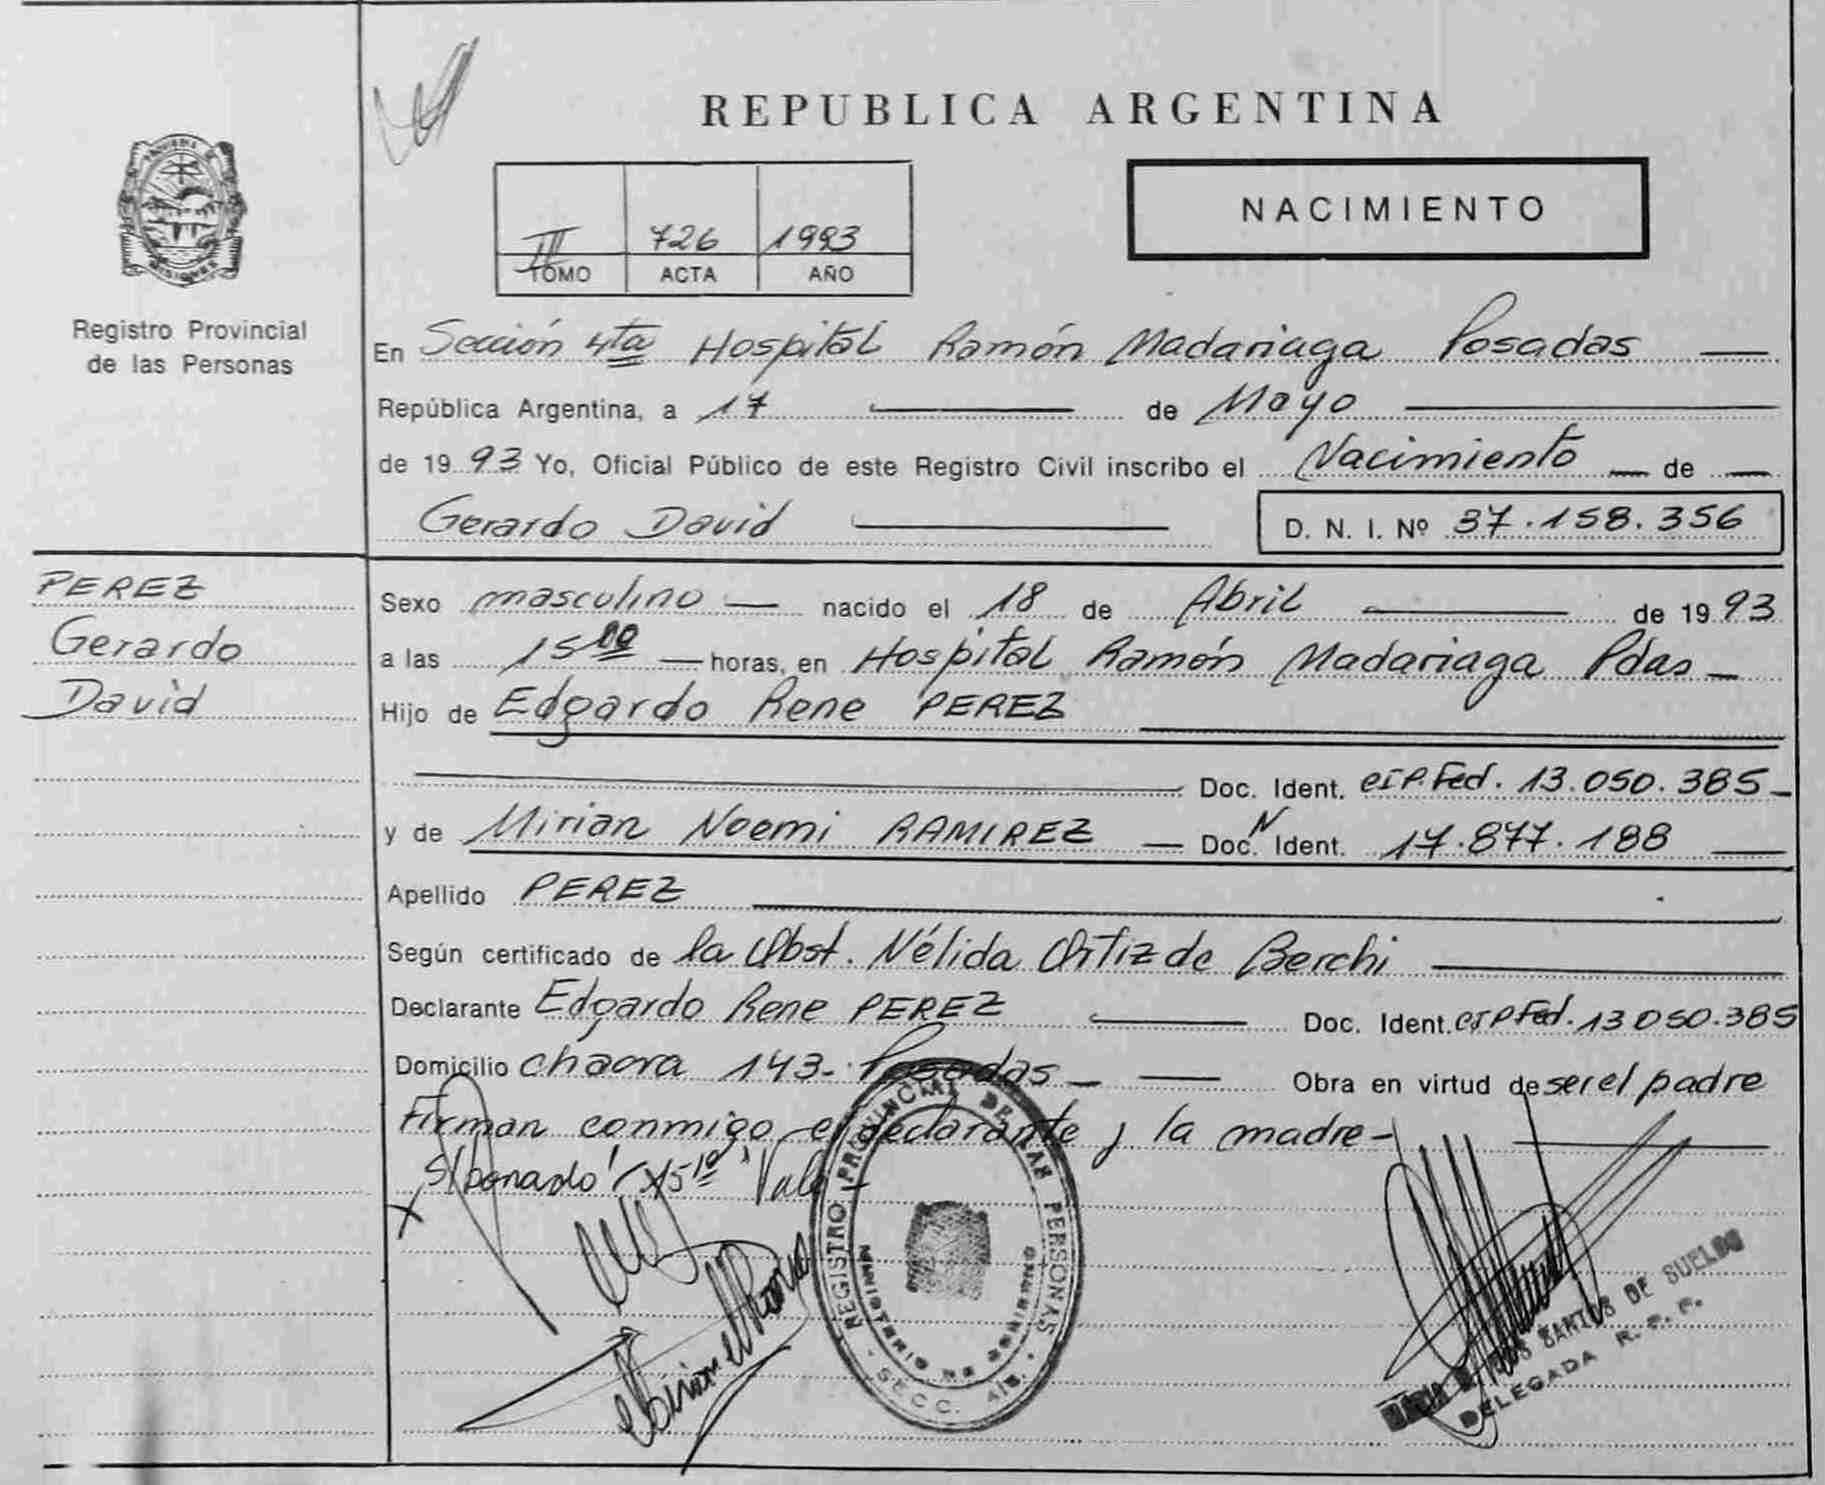 REPUBLICA ARGENTINA
NACIMIENTO
III 726 1993
TOMO ACTA AÑO
MISIONES
Registro Provincial
de las Personas
En Sección 4ta Hospital Ramón Madariaga Posadas
República Argentina, a 17 de Mayo
de 1993 Yo, Oficial Público de este Registro Civil inscribo el Nacimiento de
Gerardo David D. N. I. Nº 37.158.356
PEREZ
Gerardo
David
Sexo masculino nacido el 18 de Abril de 1993
a las 15 horas, en Hospital Ramón Madariaga Pdas
Hijo de Edgardo Rene PEREZ
Doc. Ident. Fed. 13.050.385
y de Mirian Noemi RAMIREZ Doc. N Ident. 17.877.188
Apellido PEREZ
Según certificado de la Obst. Nélida Ortiz de Berchi
Declarante Edgardo Rene PEREZ Doc. Ident. Fed. 13050.385
Domicilio chacra 143- Posadas Obra en virtud de ser el padre
Firman conmigo el declarante y la madre-
Vale
REGISTRO PROVINCIAL DE LAS PERSONAS
MINISTERIO DE GOBIERNO
SECC. 4ta.
SANTOS DE SUELDO
DELEGADA R. P. P.